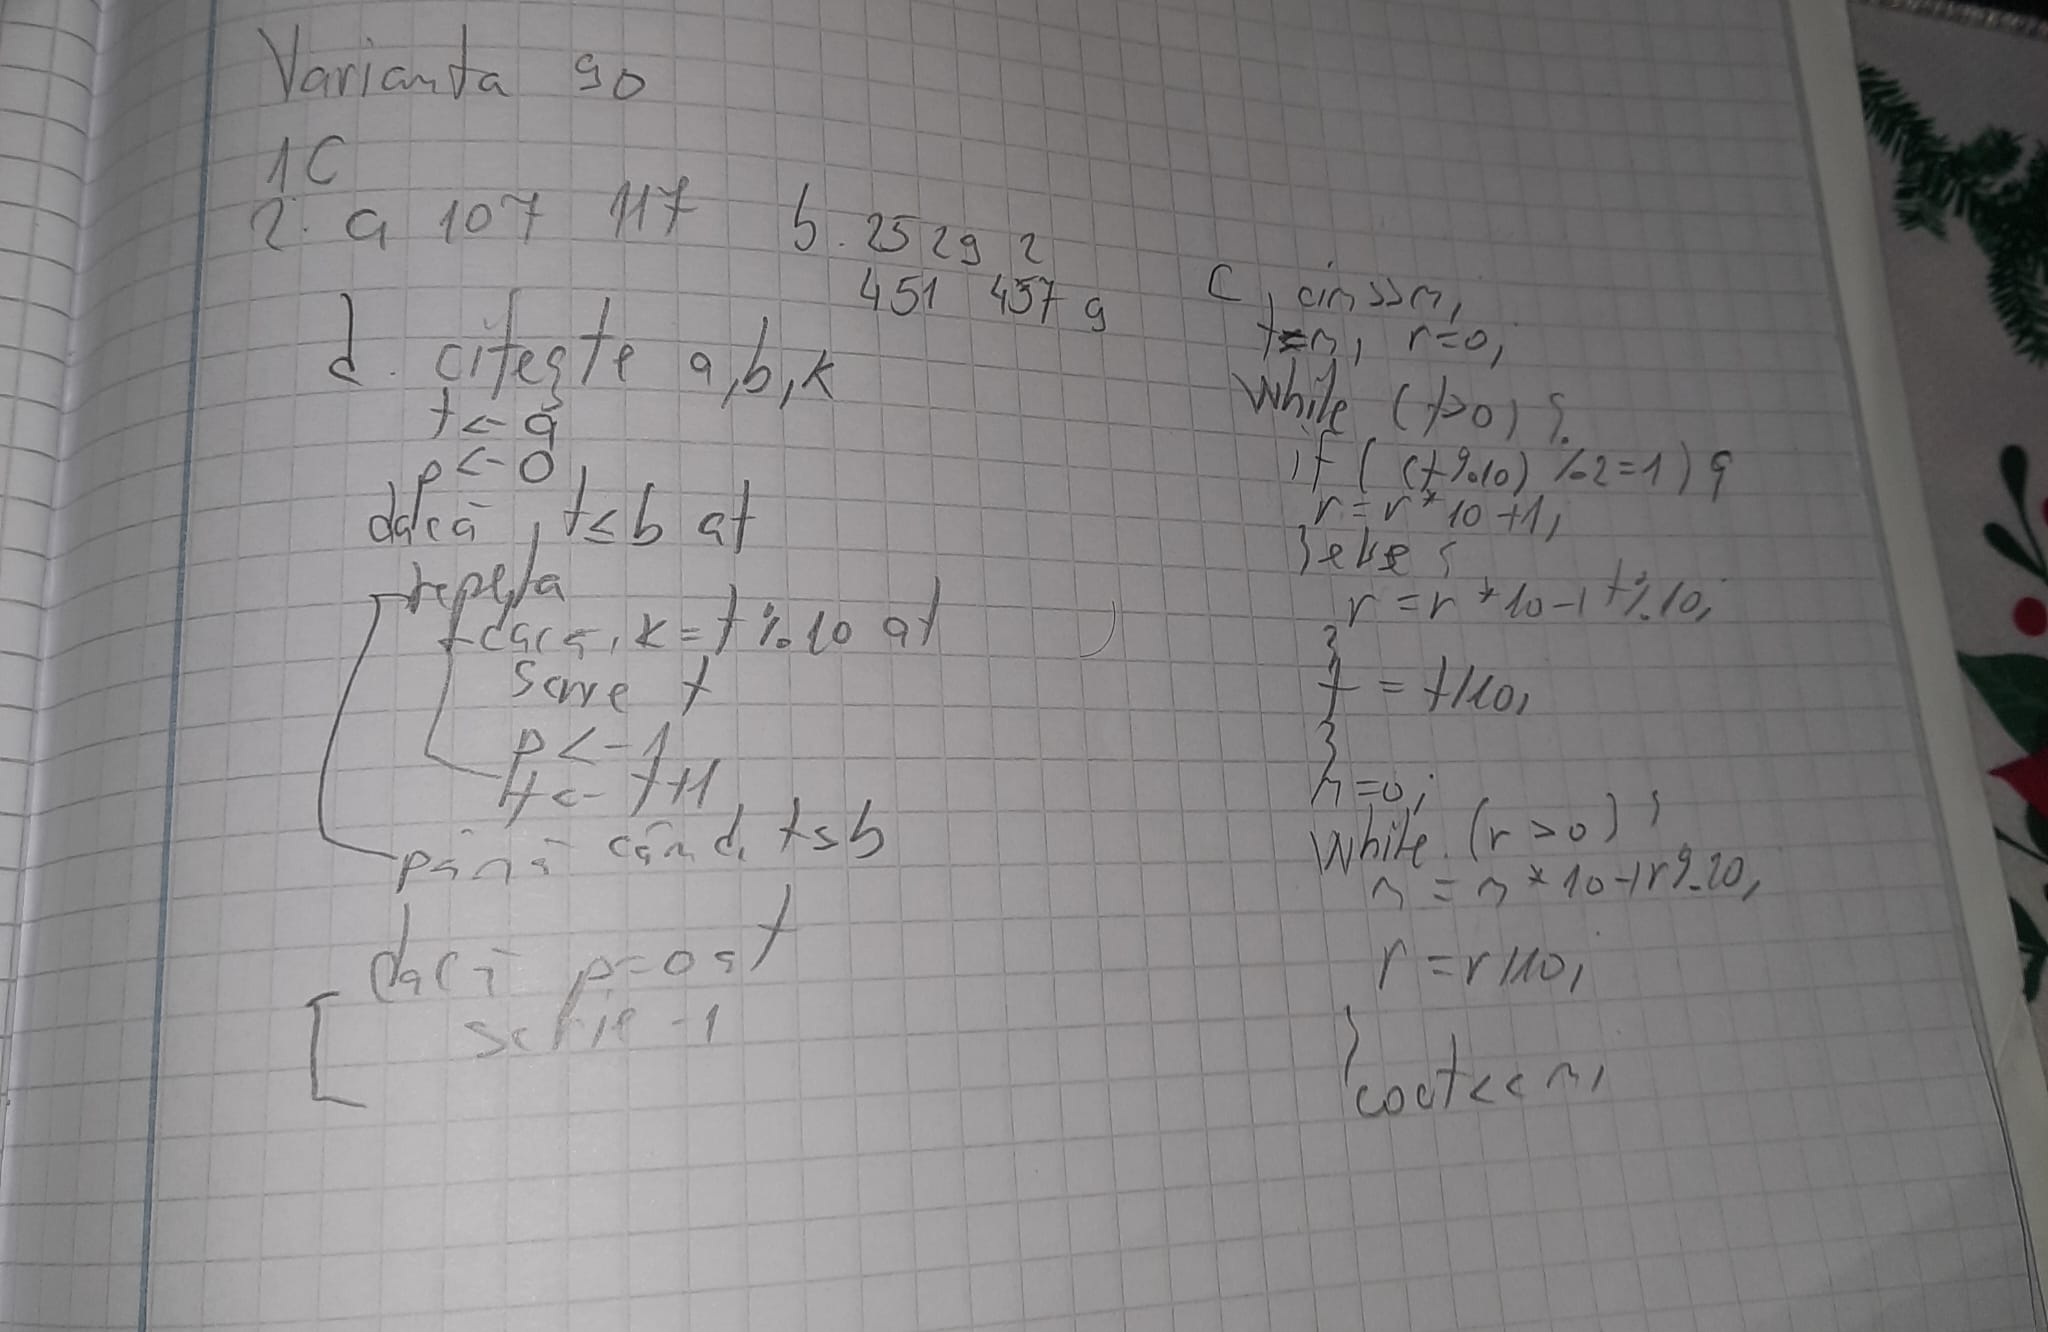 Varianta 90
1C
2. a 107 117 b. 25 29 2
451 457 9
d. citește a,b,k
t <- a
p <- 0
dacă t≤b at
repeta
dacă k=t%10 at
Scrie t
p <- 1
t <- t+1
până când t≤b
dacă p=0 at
scrie -1
C, cin>>n;
t=n; r=0;
While (t>0) {
if ( (t%10) %2=1) {
r=r*10+1;
}else {
r=r*10+t%10;
}
t = t/10;
}
n=0;
While (r>0) {
n = n*10+r%10;
r=r/10;
}
cout<<n;